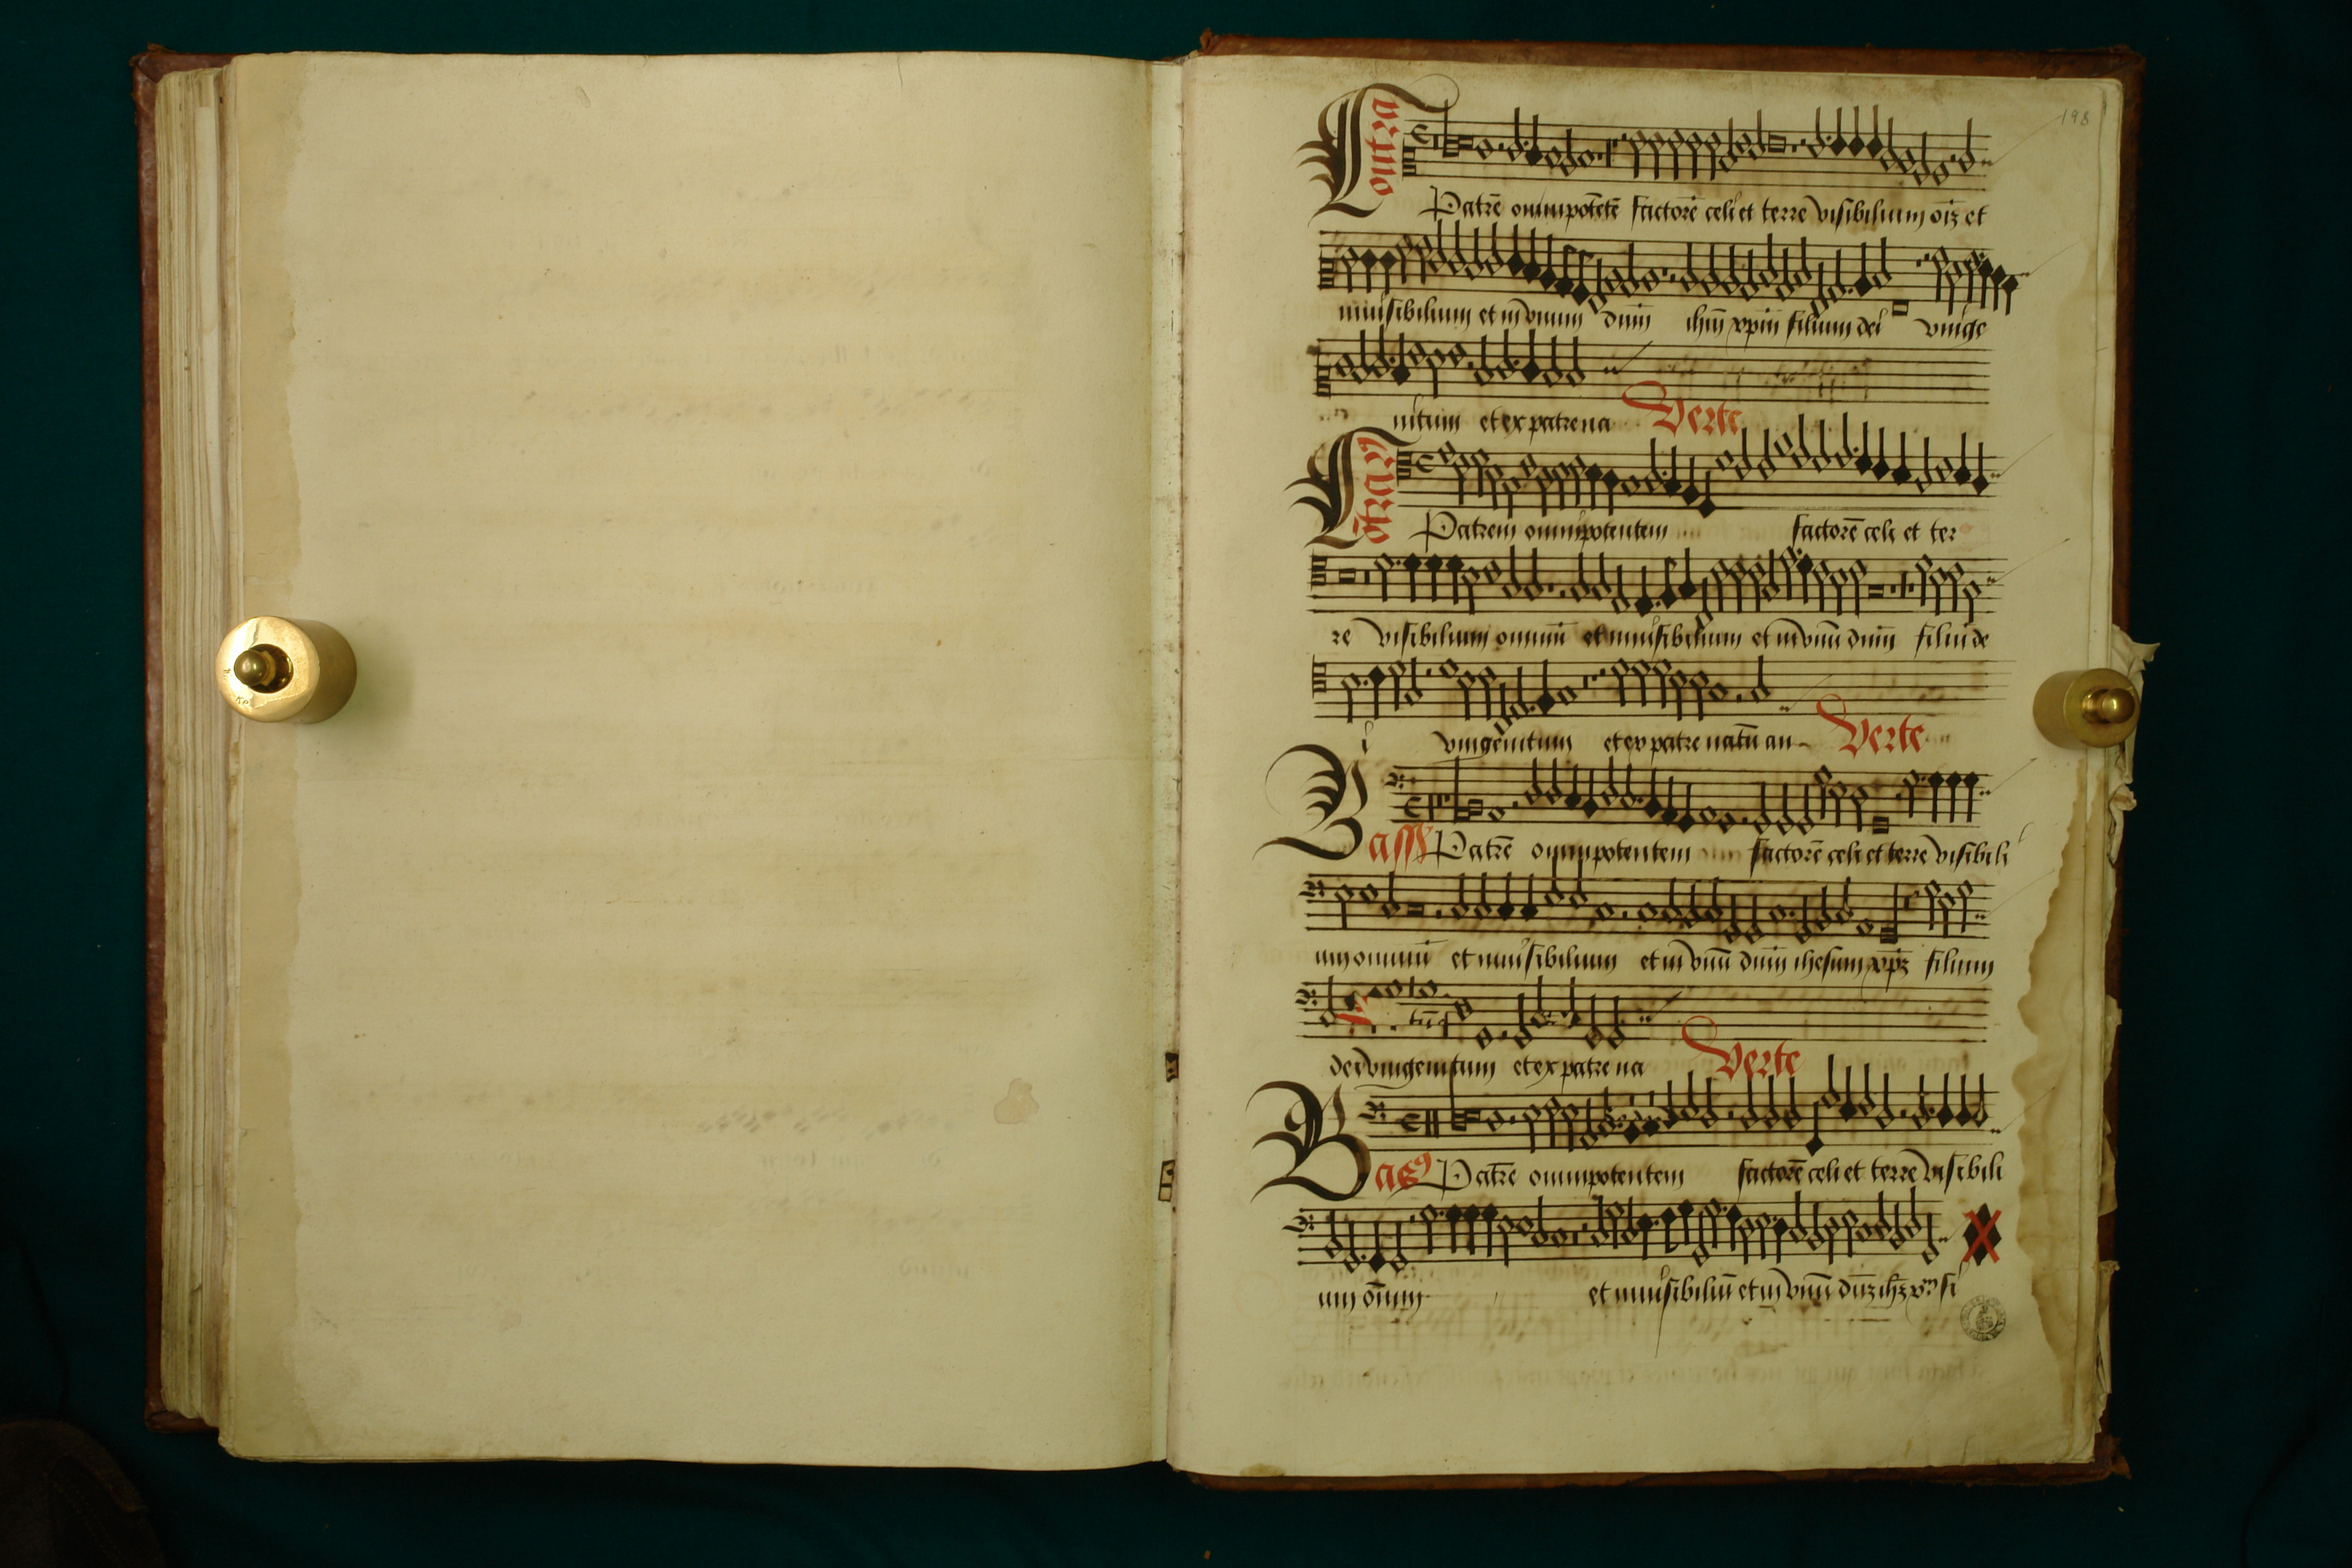 198
Contra
Patrē omnipotētē factorē celi et terre visibilium oīꝫ et
inuisibilium et in vnum dnm̄ ihm̄ xpm̄ filium dei vnige
nitum et ex patre na Verte
Cōtra
Patrem omnipotentem factorē celi et ter
re visibilium omniū et inuisibilium et in vnū dnm̄ filiū de
i vnigenitum et ex patre natū an Verte
Bassꝰ Patrē omnipotentem factorē celi et terre visibili
um omniū et inuisibilium et in vnū dnm̄ ihesum xpꝫ filium
dei vnigenitum et ex patre na Verte
Basꝰ Patrē omnipotentem factorē celi et terre visibili
um oīum et inuisibiliū et in vnū dn̄ꝫ ih̄ꝫ fi